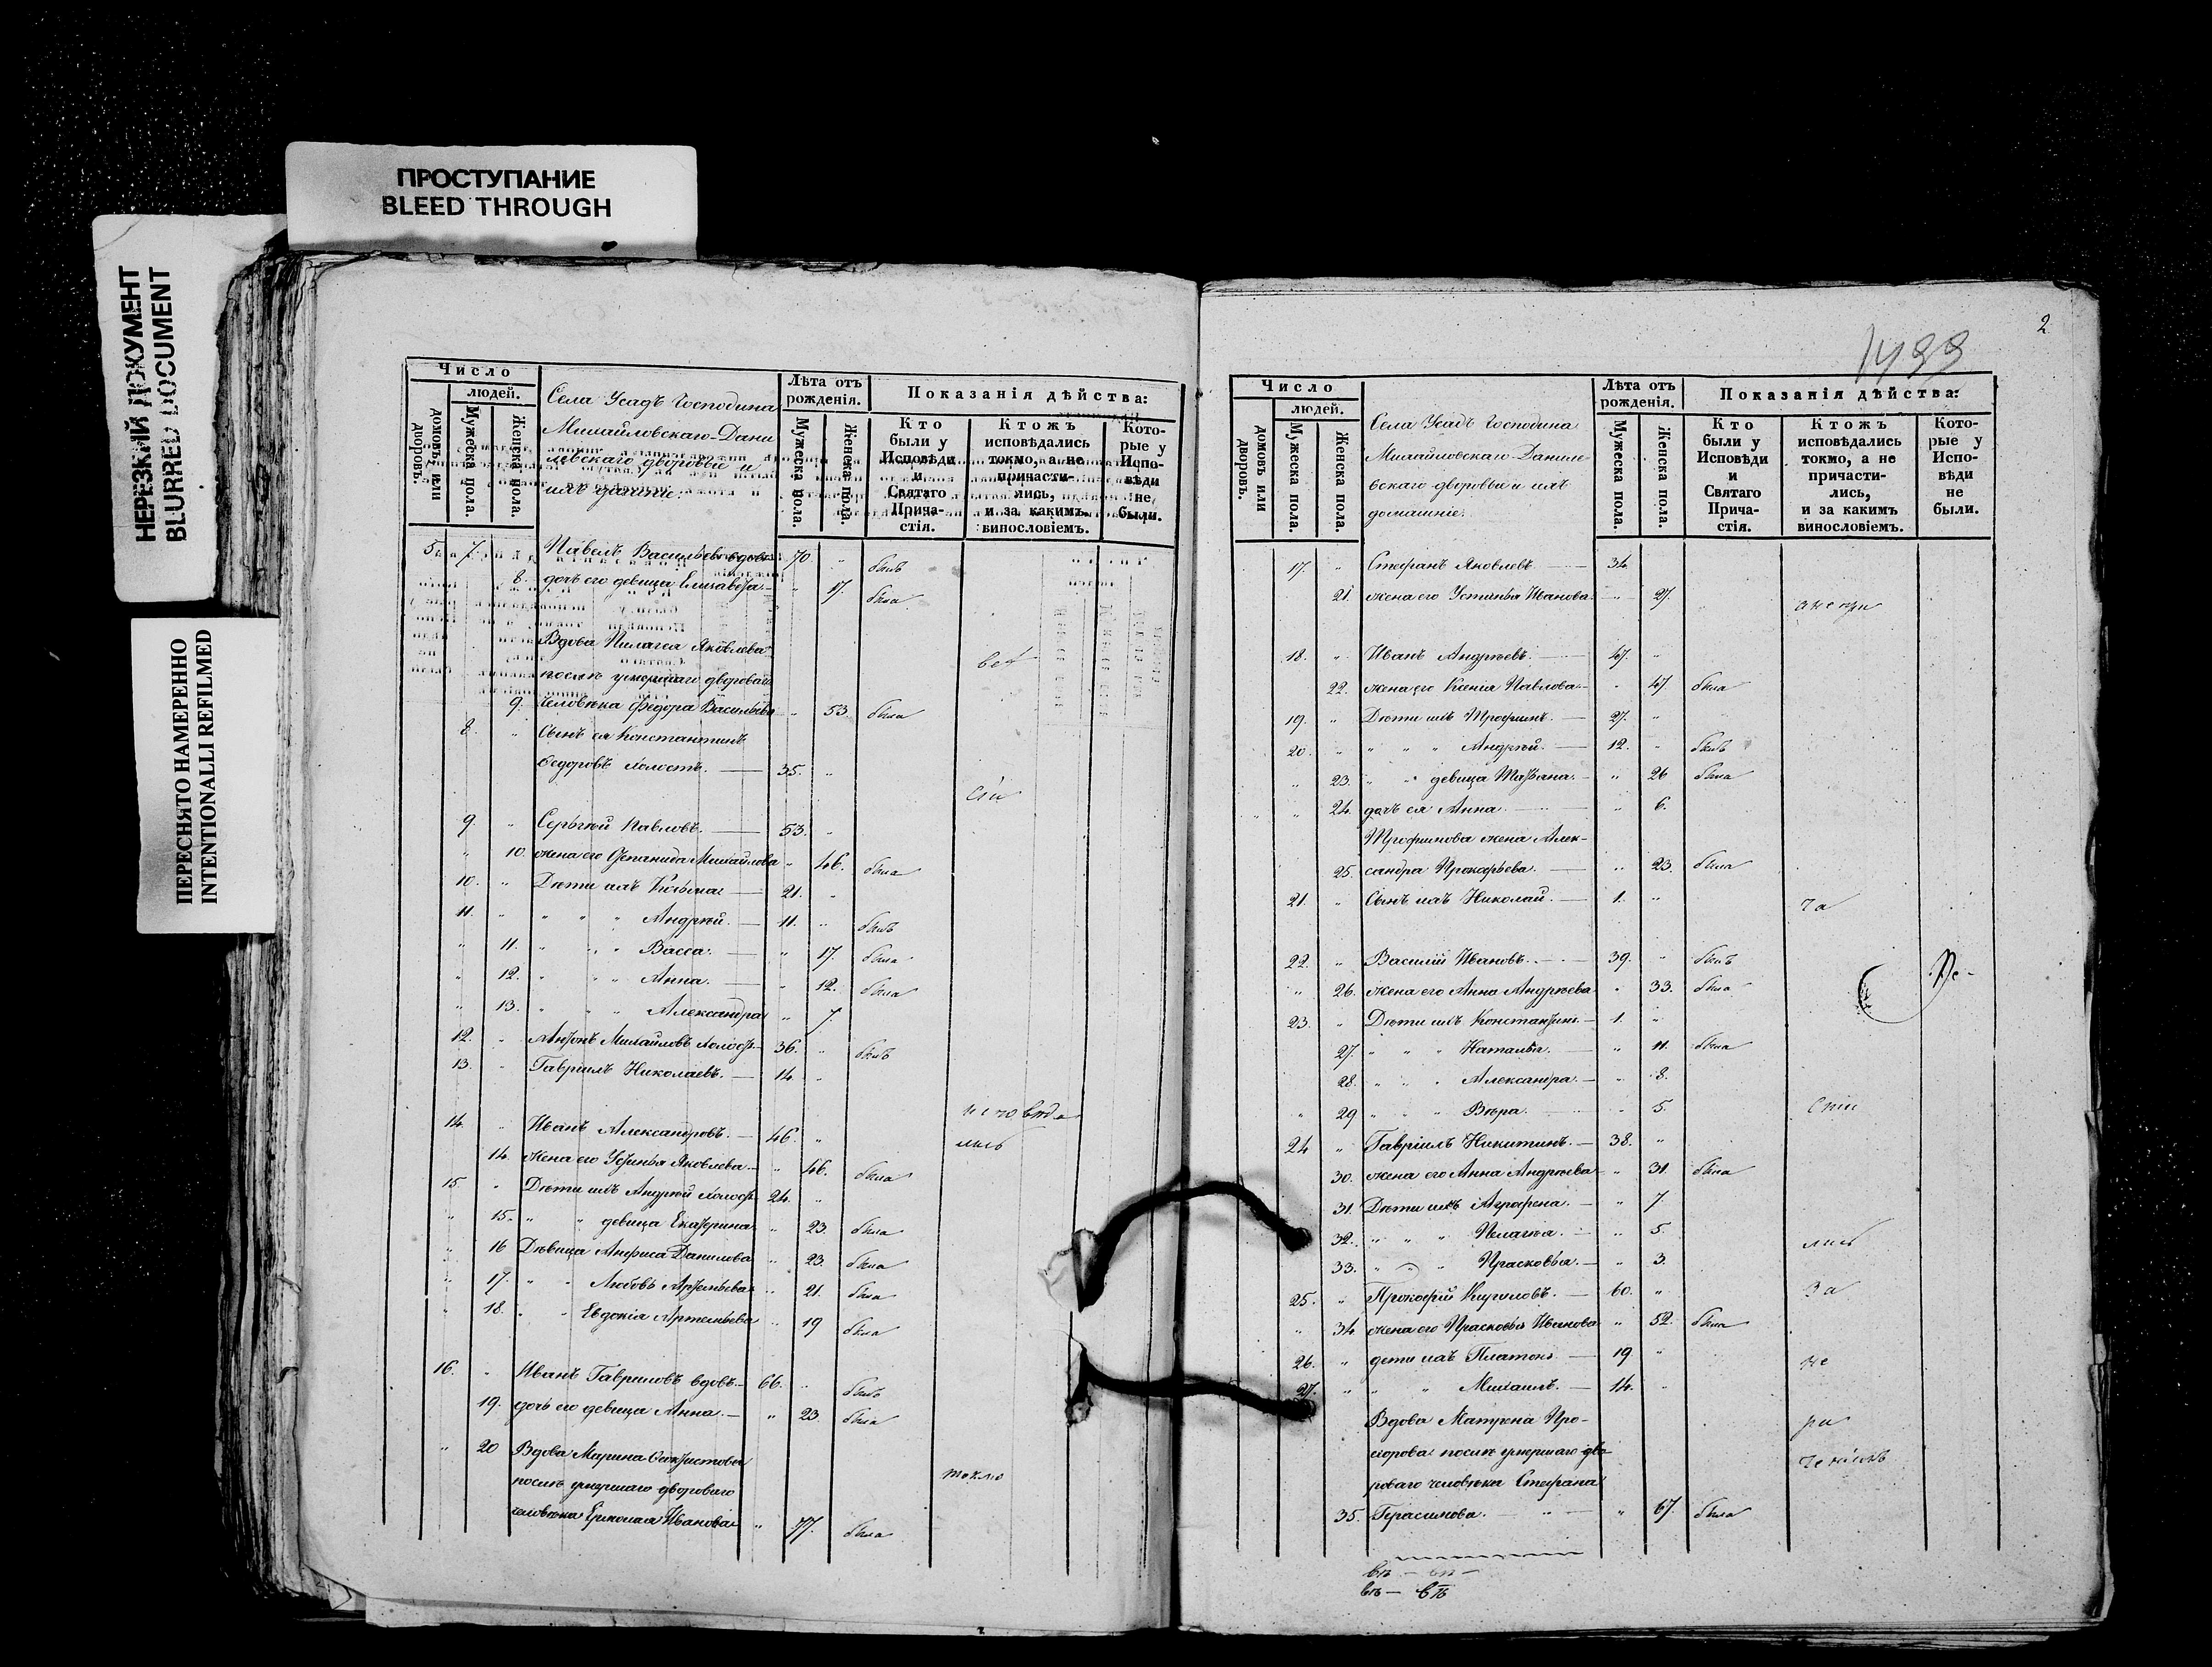 ПРОСТУПАНИЕ
BLEED THROUGH
НЕРЕЗКИЙ ДОКУМЕНТ
BLURRED DOCUMENT
ПЕРЕСНЯТО НАМЕРЕННО
INTENTIONALLI REFILMED
Число
людей.
домовъ или дворовъ.
Мужеска пола.
Женска пола.
Села Усадъ Господина
Михайловскаго-Дани
левскаго дворовыи и
ихъ
Лѣта отъ рожденія.
Мужеска пола.
Женска пола.
Показанія дѣйства:
Кто были у Исповѣди и Святаго Прича-стія.
Ктожъ исповѣдались токмо, а не причасти-лись, и за какимъ винословіемъ.
Кото-рые у Испо-вѣди не были.
5 7. Павелъ Васильевъ вдовъ 70. " былъ
8. дочь его девица Елизавета " 17. была
Вдова Пилагея Яковлева
послѣ умершаго двороваго
9. человѣка Федора Васильева " 53 была
8. " Сынъ ея Константинъ
Федоровъ холостъ. 35. "
9. " Сергѣй Павловъ. 53. "
" 10. жена его Степанида Михайлова " 46. была
10. " Дѣти ихъ Козьма 21. "
11. " " " " Андрѣй. 11. " былъ
" 11. " " " Васса. " 17. была
" 12. " " " Анна. " 12. была
" 13. " " " Александра " 7.
12. " Антонъ Михайловъ холостъ 36. " былъ
13. " Гавріилъ Николаевъ. 14. "
исповѣда
14. " Иванъ Александровъ. 46. " лись
14. жена его Устинья Яковлева " 46. была
15. " Дѣти ихъ Андрѣй холостъ 24. "
" 15. " " девица Екатерина " 23. была
" 16 Дѣвица Анфиса Данилова " 23. была
" 17. " " Любовь Артемьева " 21. была
" 18. " " Евдокія Артемьева " 19 была
16. " Иванъ Гавриловъ вдовъ. 66. " былъ
19. дочь его девица Анна. " 23. была
" 20 Вдова Марина
послѣ умершаго двороваго
токмо
человѣка Ермолая Иванова " 77. была
2
1499
Число
людей.
домовъ или дворовъ.
Мужеска пола.
Женска пола.
Села Усадъ Господина
Михайловскаго-Данил
евскаго дворовыи и ихъ
домашніе.
Лѣта отъ рожденія.
Мужеска пола.
Женска пола.
Показанія дѣйства:
Кто были у Исповѣди и Святаго Прича-стія.
Ктожъ исповѣдались токмо, а не причасти-лись, и за какимъ винословіемъ.
Кото-рые у Испо-вѣди не были.
17. " Стефанъ Яковлевъ 34.
21. жена его Устинья Иванова " 27. а не при
18. " Иванъ Андрѣевъ. 47. "
22. жена его Ксенія Павлова " 47. была
19. " Дѣти ихъ Трофимъ. 27. "
20. " " " " Андрѣй. 12. " былъ
" 23. " " девица Татьяна. " 26 была
" " 24. дочь ея Анна. " 6.
Трофимова жена Алек-
25. сандра Прокофьева. " 23. была
21. " Сынъ ихъ Николай. 1. " ча
22. " Василій Ивановъ. 39. " былъ Не-
" 26. жена его Анна Андрѣева " 33. была
23. " Дѣти ихъ Константинъ 1. "
27. " " " Наталья. " 11. была
28. " " " Александра. " 8.
" 29 " " " Вѣра. " 5. сти
24 " Гавріилъ Никитинъ. 38. "
30. жена его Анна Андрѣева " 31. была
31. Дѣти ихъ Агрофена. " 7.
32. " " " Пелагѣя. " 5. лись
33. " " " Прасковья. " 3.
25. " Прокофій Кириловъ. 60. " за
" 34. жена его Прасковья Иванова " 52. была
26. " дети ихъ Платонъ 19 " не
27. " " " Михаилъ. 14. "
Вдова Матрена Про-
ра
хорова послѣ умершаго дво-
роваго человѣка Стефана
35. Герасимова. " " 67. была